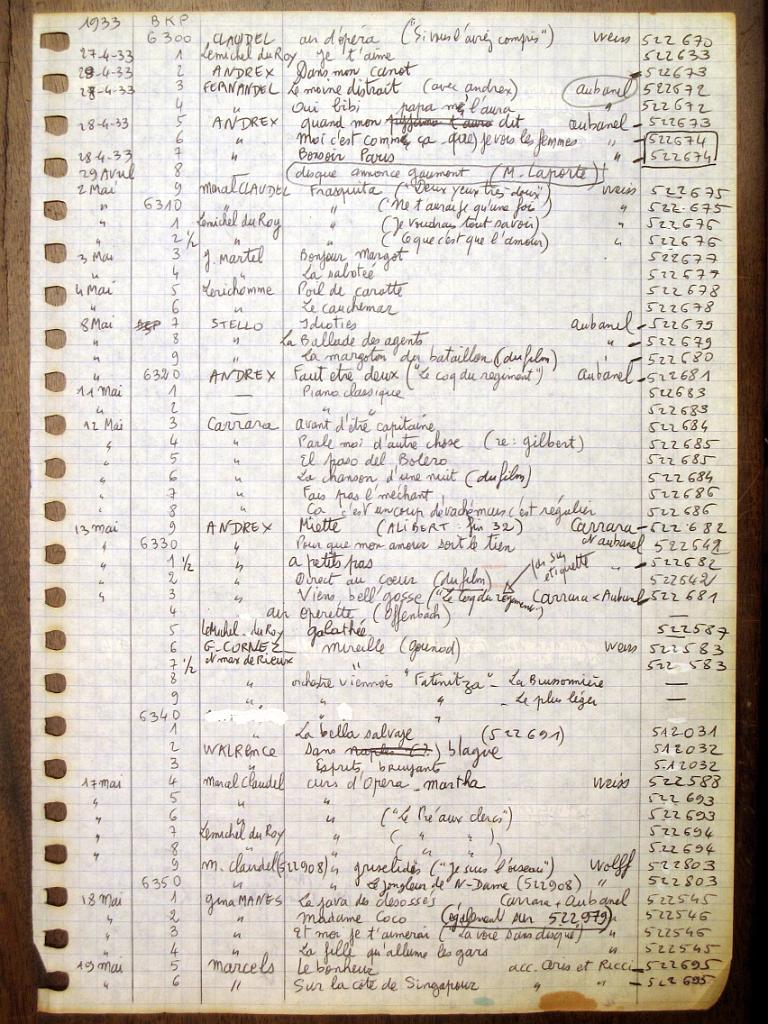 1933 BKP
6300 CLAUDEL air d'opéra ("Si vous l'aviez compris") Weiss 522 670
27-4-33 1 Lemichel du Roy Je t'aime 522 633
28-4-33 2 ANDREX Dans mon canot 522 673
28-4-33 3 FERNANDEL Le moine distrait (avec andrex) aubanel 522672
4 " Oui bibi papa me l'aura " 522 672
28-4-33 5 ANDREX quand mon dit aubanel 522673
6 " Moi c'est comme ça que je vois les femmes " 522674
28-4-33 7 " Bonsoir Paris " 522674
29 Avril 8 disque annonce gaumont (M. Laporte)
2 Mai 9 Meral CLAUDEL Frasquita ("Deux yeux très doux") Weiss 522675
" 6310 " " ("Ne t'aurai-je qu'une fois") " 522.675
" 1 Lemichel du Roy " (Je voudrais tout savoir) " 522676
" 2 1/2 " " ("Ce que c'est que l'amour) " 522676
3 Mai 3 J. Martel Bonjour Margot 522677
" 4 " La sabotée 522677
4 Mai 5 Lerichomme Poil de carotte 522678
" 6 " Le cauchemar 522678
8 Mai 7 STELLO Idioties aubanel 522679
" 8 " La Ballade des agents " 522679
" 9 " La margoton du bataillon (du film) " 522680
" 6320 ANDREX Faut etre deux ("Le coq du regiment") aubanel 522681
11 Mai 1 — Piano classique 522683
" 2 — " " 522683
12 Mai 3 Carrara avant d'être capitaine 522684
" 4 " Parle moi d'autre chose (re: gilbert) 522685
" 5 " El paso del Bolero 522685
" 6 " La chanson d'une nuit (du film) 522684
" 7 " Fais pas l'méchant 522686
" 8 " Ca c'est un coup c'est régulier 522686
13 mai 9 ANDREX Miette (ALIBERT: fin 32) Carrara 522682
" 6330 " Pour que mon amour soit le tien N aubanel 522642
" 1 1/2 " a petits pas pas sur etiquette " 522682
" 2 " Direct au coeur (du film) " 522642
" 3 " Viens bell' gosse ("Le Coq du regiment") Carrara + Aubanel 522681
4 air operette (Offenbach) —
5 Lemichel du Roy galathée 522587
6 G-CORNEZ mireille (gounod) Weiss 522583
7 1/2 N max de Rieux " 522 583
8 " orchestre viennois "Fatinitza" - La Buissonnière —
9 " " " - Le plus léger —
6340 " "
1 " La bella salvaje (522691) 512031
2 WALRENCE Sans blague 512032
3 " Esprits bruyants 512032
17 mai 4 Meral Claudel airs d'Opéra martha Weiss 522588
" 5 " " 522 693
" 6 " " ("Le Pré aux clercs") 522693
" 7 Lemichel du Roy " ( " " ) 522694
" 8 " " ( " " ) 522694
9 m. claudel (522908) " griselidis ("Je suis l'oiseau") Wolff 522803
6350 " Le jongleur de N-Dame (522908) " 522803
18 Mai 1 gina MANES La java des désossés Carrara + Aubanel 522545
" 2 " Madame Coco (également sur 522979) " 522546
" 3 " Et moi je t'aimerai ("La voie sans disque") " 522546
" 4 " La fille qu'allume les gars " 522545
19 mai 5 marcels Le bonheur acc. Ceris et Ricci 522695
" 6 " Sur la côte de Singapour " " 522695